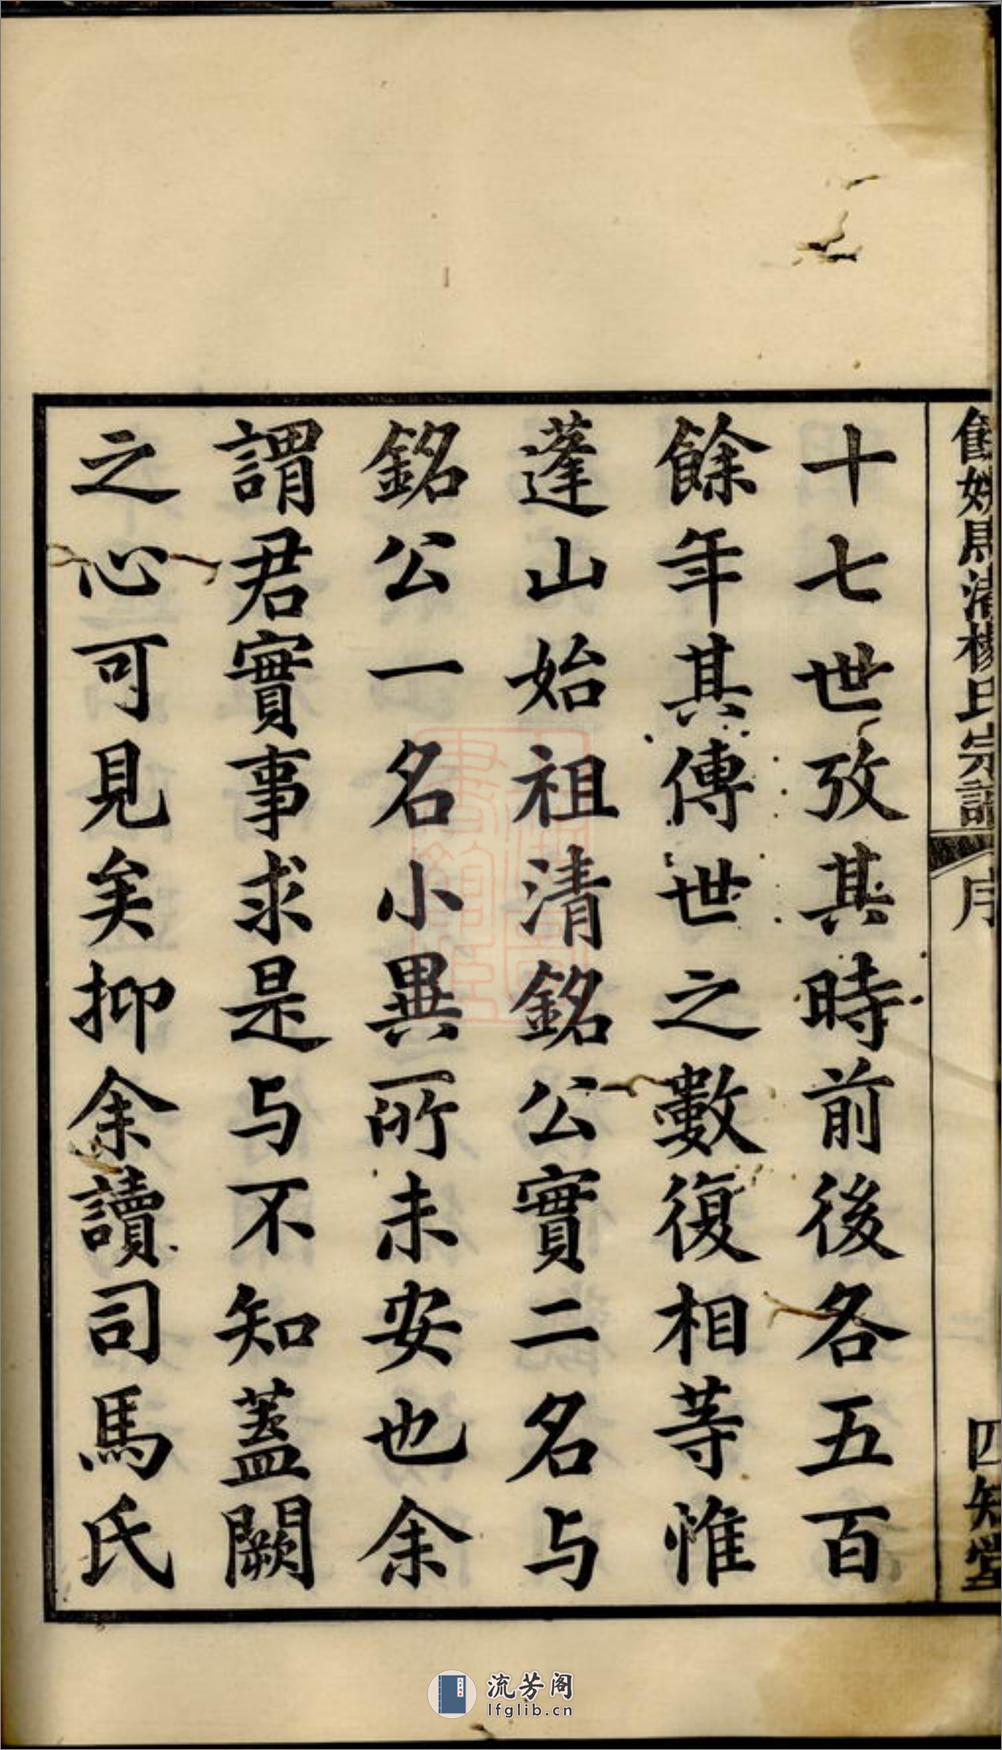 舊姚馬渚楊氏宗譜
序
四知堂
十七世攷其時前後各五百
餘年其傳世之數復相等惟
蓬山始祖清銘公實二名与
銘公一名小異所未安也余
謂君實事求是与不知蓋闕
之心可見矣抑余讀司馬氏
流芳阁
lfglib.cn